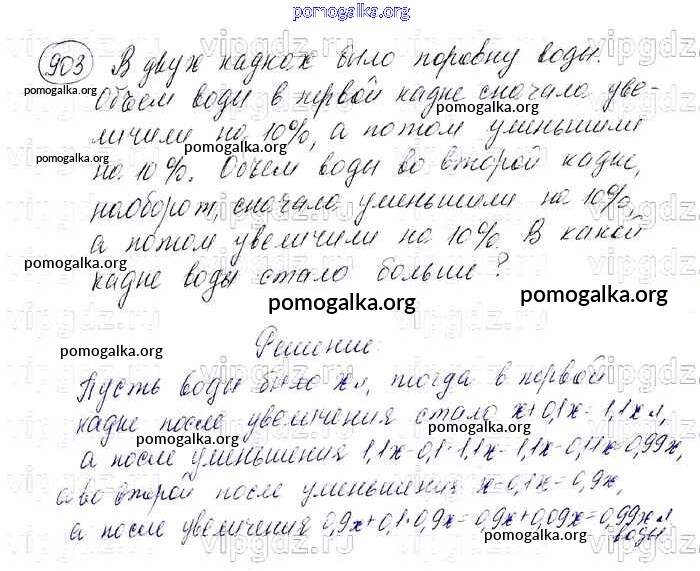 pomogalka.org
903 В двух кадках было поровну воды.
pomogalka.org
Объем воды в первой кадке сначала уве-
pomogalka.org
личили на 10%, а потом уменьшили
pomogalka.org
pomogalka.org
на 10%. Объем воды во второй кадке,
наоборот, сначала уменьшили на 10%,
pomogalka.org
а потом увеличили на 10%. В какой
pomogalka.org
кадке воды стало больше?
pomogalka.org
pomogalka.org
Решение:
pomogalka.org
Пусть воды было x л, тогда в первой
pomogalka.org
кадке после увеличения стало x+0,1x=1,1x л,
pomogalka.org
а после уменьшения 1,1x-0,1·1,1x=1,1x-0,11x=0,99x,
а во второй после уменьшения x-0,1x=0,9x,
pomogalka.org
pomogalka.org
а после увеличения 0,9x+0,1·0,9x=0,9x+0,09x=0,99x л
воды